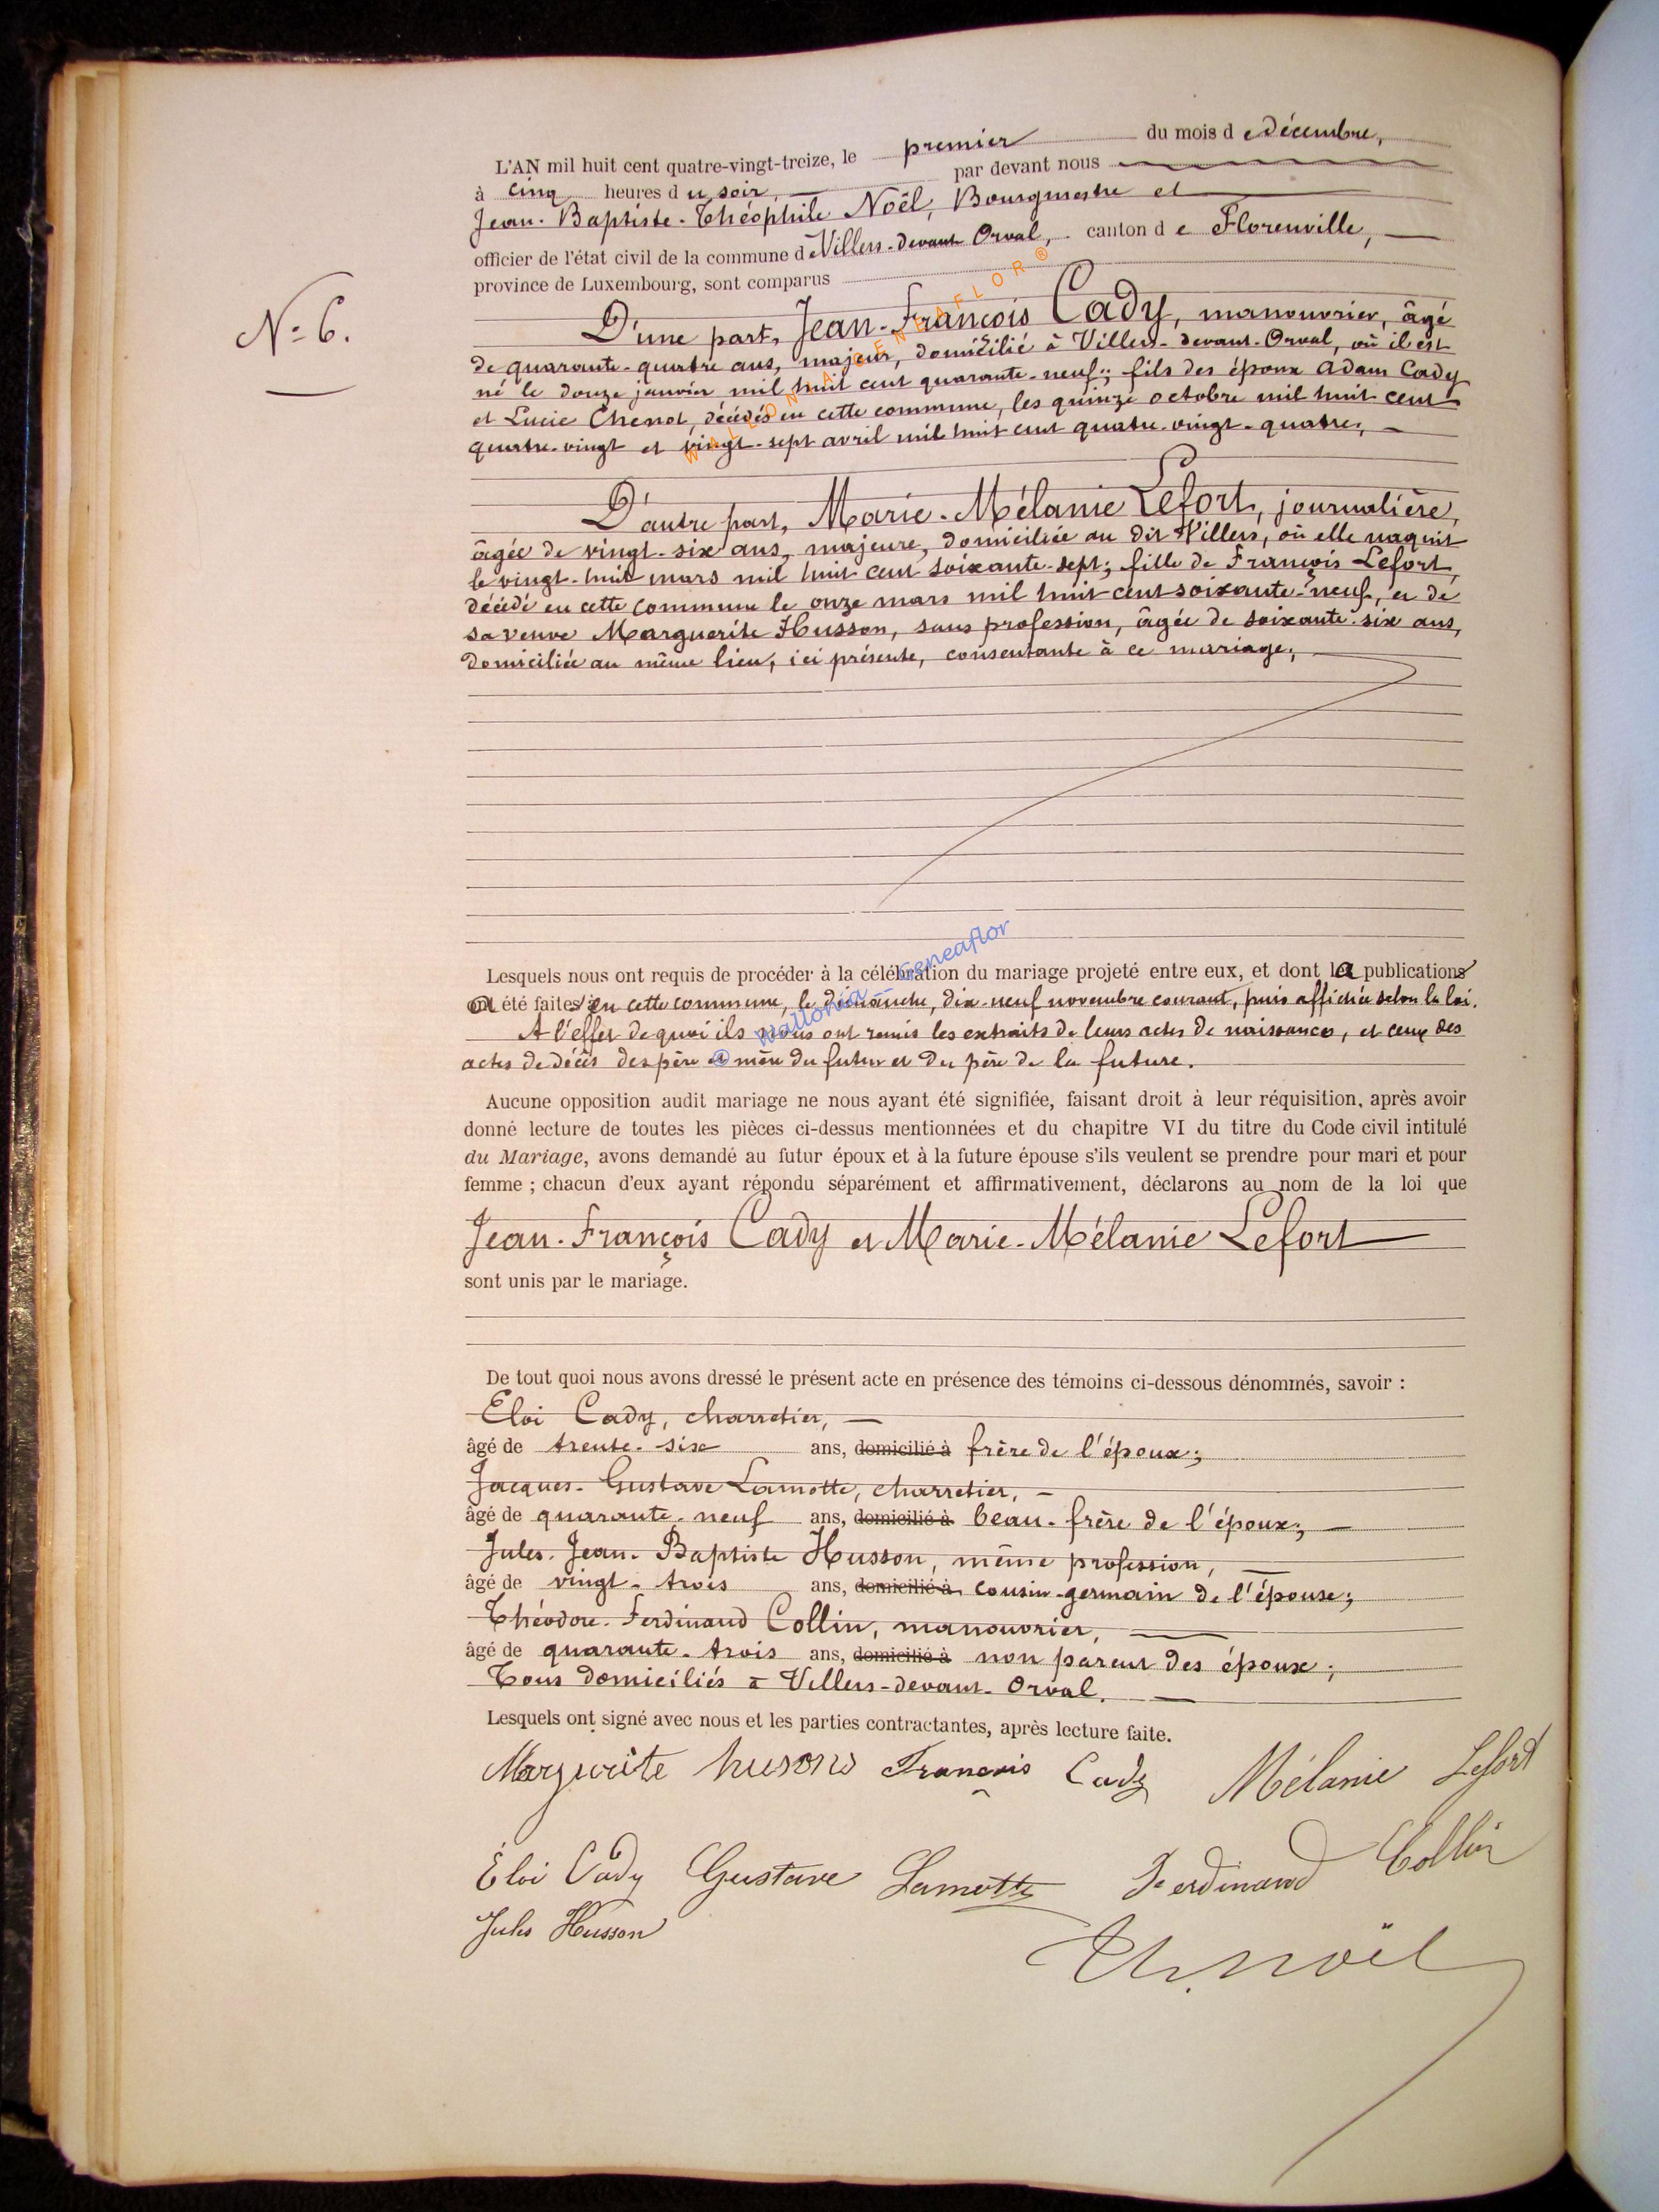 N° 6.
L'AN mil huit cent quatre-vingt-treize, le premier du mois de décembre,
à cinq heures du soir, par devant nous
Jean-Baptiste-Théophile Noël, Bourgmestre et
officier de l'état civil de la commune de Villers-devant-Orval, canton de Florenville,
province de Luxembourg, sont comparus
D'une part, Jean-François Cady, manouvrier, âgé
de quarante-quatre ans, majeur, domicilié à Villers-devant-Orval, où il est
né le douze janvier mil huit cent quarante-neuf; fils des époux Adam Cady
et Lucie Chenot, décédés en cette commune, les quinze octobre mil huit cent
quatre-vingt et vingt-sept avril mil huit cent quatre-vingt-quatre;
D'autre part, Marie-Mélanie Lefort, journalière,
âgée de vingt-six ans, majeure, domiciliée au dit Villers, où elle naquit
le vingt-huit mars mil huit cent soixante-sept; fille de François Lefort,
décédé en cette commune le onze mars mil huit cent soixante-neuf, et de
sa veuve Marguerite Husson, sans profession, âgée de soixante-six ans,
domiciliée au même lieu, ici présente, consentante à ce mariage;
Lesquels nous ont requis de procéder à la célébration du mariage projeté entre eux, et dont la publication
a été faite en cette commune, le dimanche, dix-neuf novembre courant, puis affichée selon la loi.
A l'effet de quoi ils nous ont remis les extraits de leurs actes de naissance, et ceux des
actes de décès des père et mère du futur et du père de la future.
Aucune opposition audit mariage ne nous ayant été signifiée, faisant droit à leur réquisition, après avoir
donné lecture de toutes les pièces ci-dessus mentionnées et du chapitre VI du titre du Code civil intitulé
du Mariage, avons demandé au futur époux et à la future épouse s'ils veulent se prendre pour mari et pour
femme ; chacun d'eux ayant répondu séparément et affirmativement, déclarons au nom de la loi que
Jean-François Cady et Marie-Mélanie Lefort
sont unis par le mariage.
De tout quoi nous avons dressé le présent acte en présence des témoins ci-dessous dénommés, savoir :
Eloi Cady, charretier,
âgé de trente-six ans, domicilié à frère de l'époux;
Jacques-Gustave Lamotte, charretier,
âgé de quarante-neuf ans, domicilié à beau-frère de l'époux;
Jules-Jean-Baptiste Husson, même profession,
âgé de vingt-trois ans, domicilié à cousin-germain de l'épouse;
Théodore-Ferdinand Collin, manouvrier,
âgé de quarante-trois ans, domicilié à non parent des époux;
Tous domiciliés à Villers-devant-Orval.
Lesquels ont signé avec nous et les parties contractantes, après lecture faite.
Marguerite husons François Cady Mélanie Lefort
Éloi Cady Gustave Lamotte Ferdinand Collin
Jules Husson
Th. Noël
WALLONIA GENEAFLOR ®
Wallonia - Geneaflor